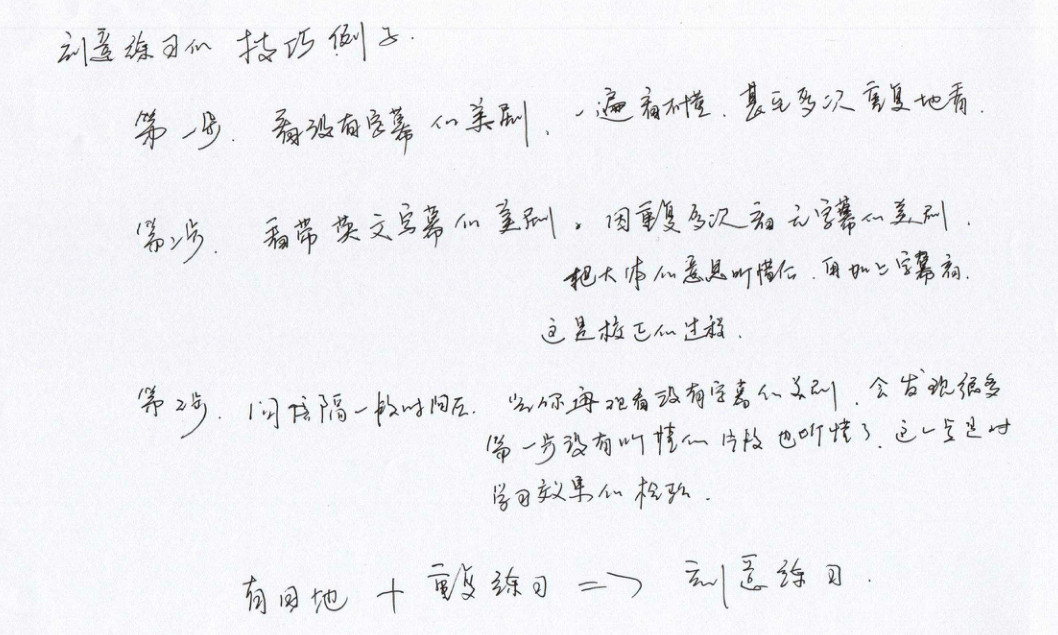 刻意练习的 技巧例子.
第一步. 看没有字幕的美剧, 一遍看不懂, 甚至多次重复地看.
第二步. 看带英文字幕的美剧. 因重复多次看无字幕的美剧,
把大体的意思听懂后, 再加上字幕看.
这是校正的过程.
第三步. 间隔一段时间后. 当你再观看没有字幕的美剧, 会发现很多
第一步没有听懂的片段也听懂了, 这一步是对
学习效果的检验.
有目地 + 重复练习 => 刻意练习.